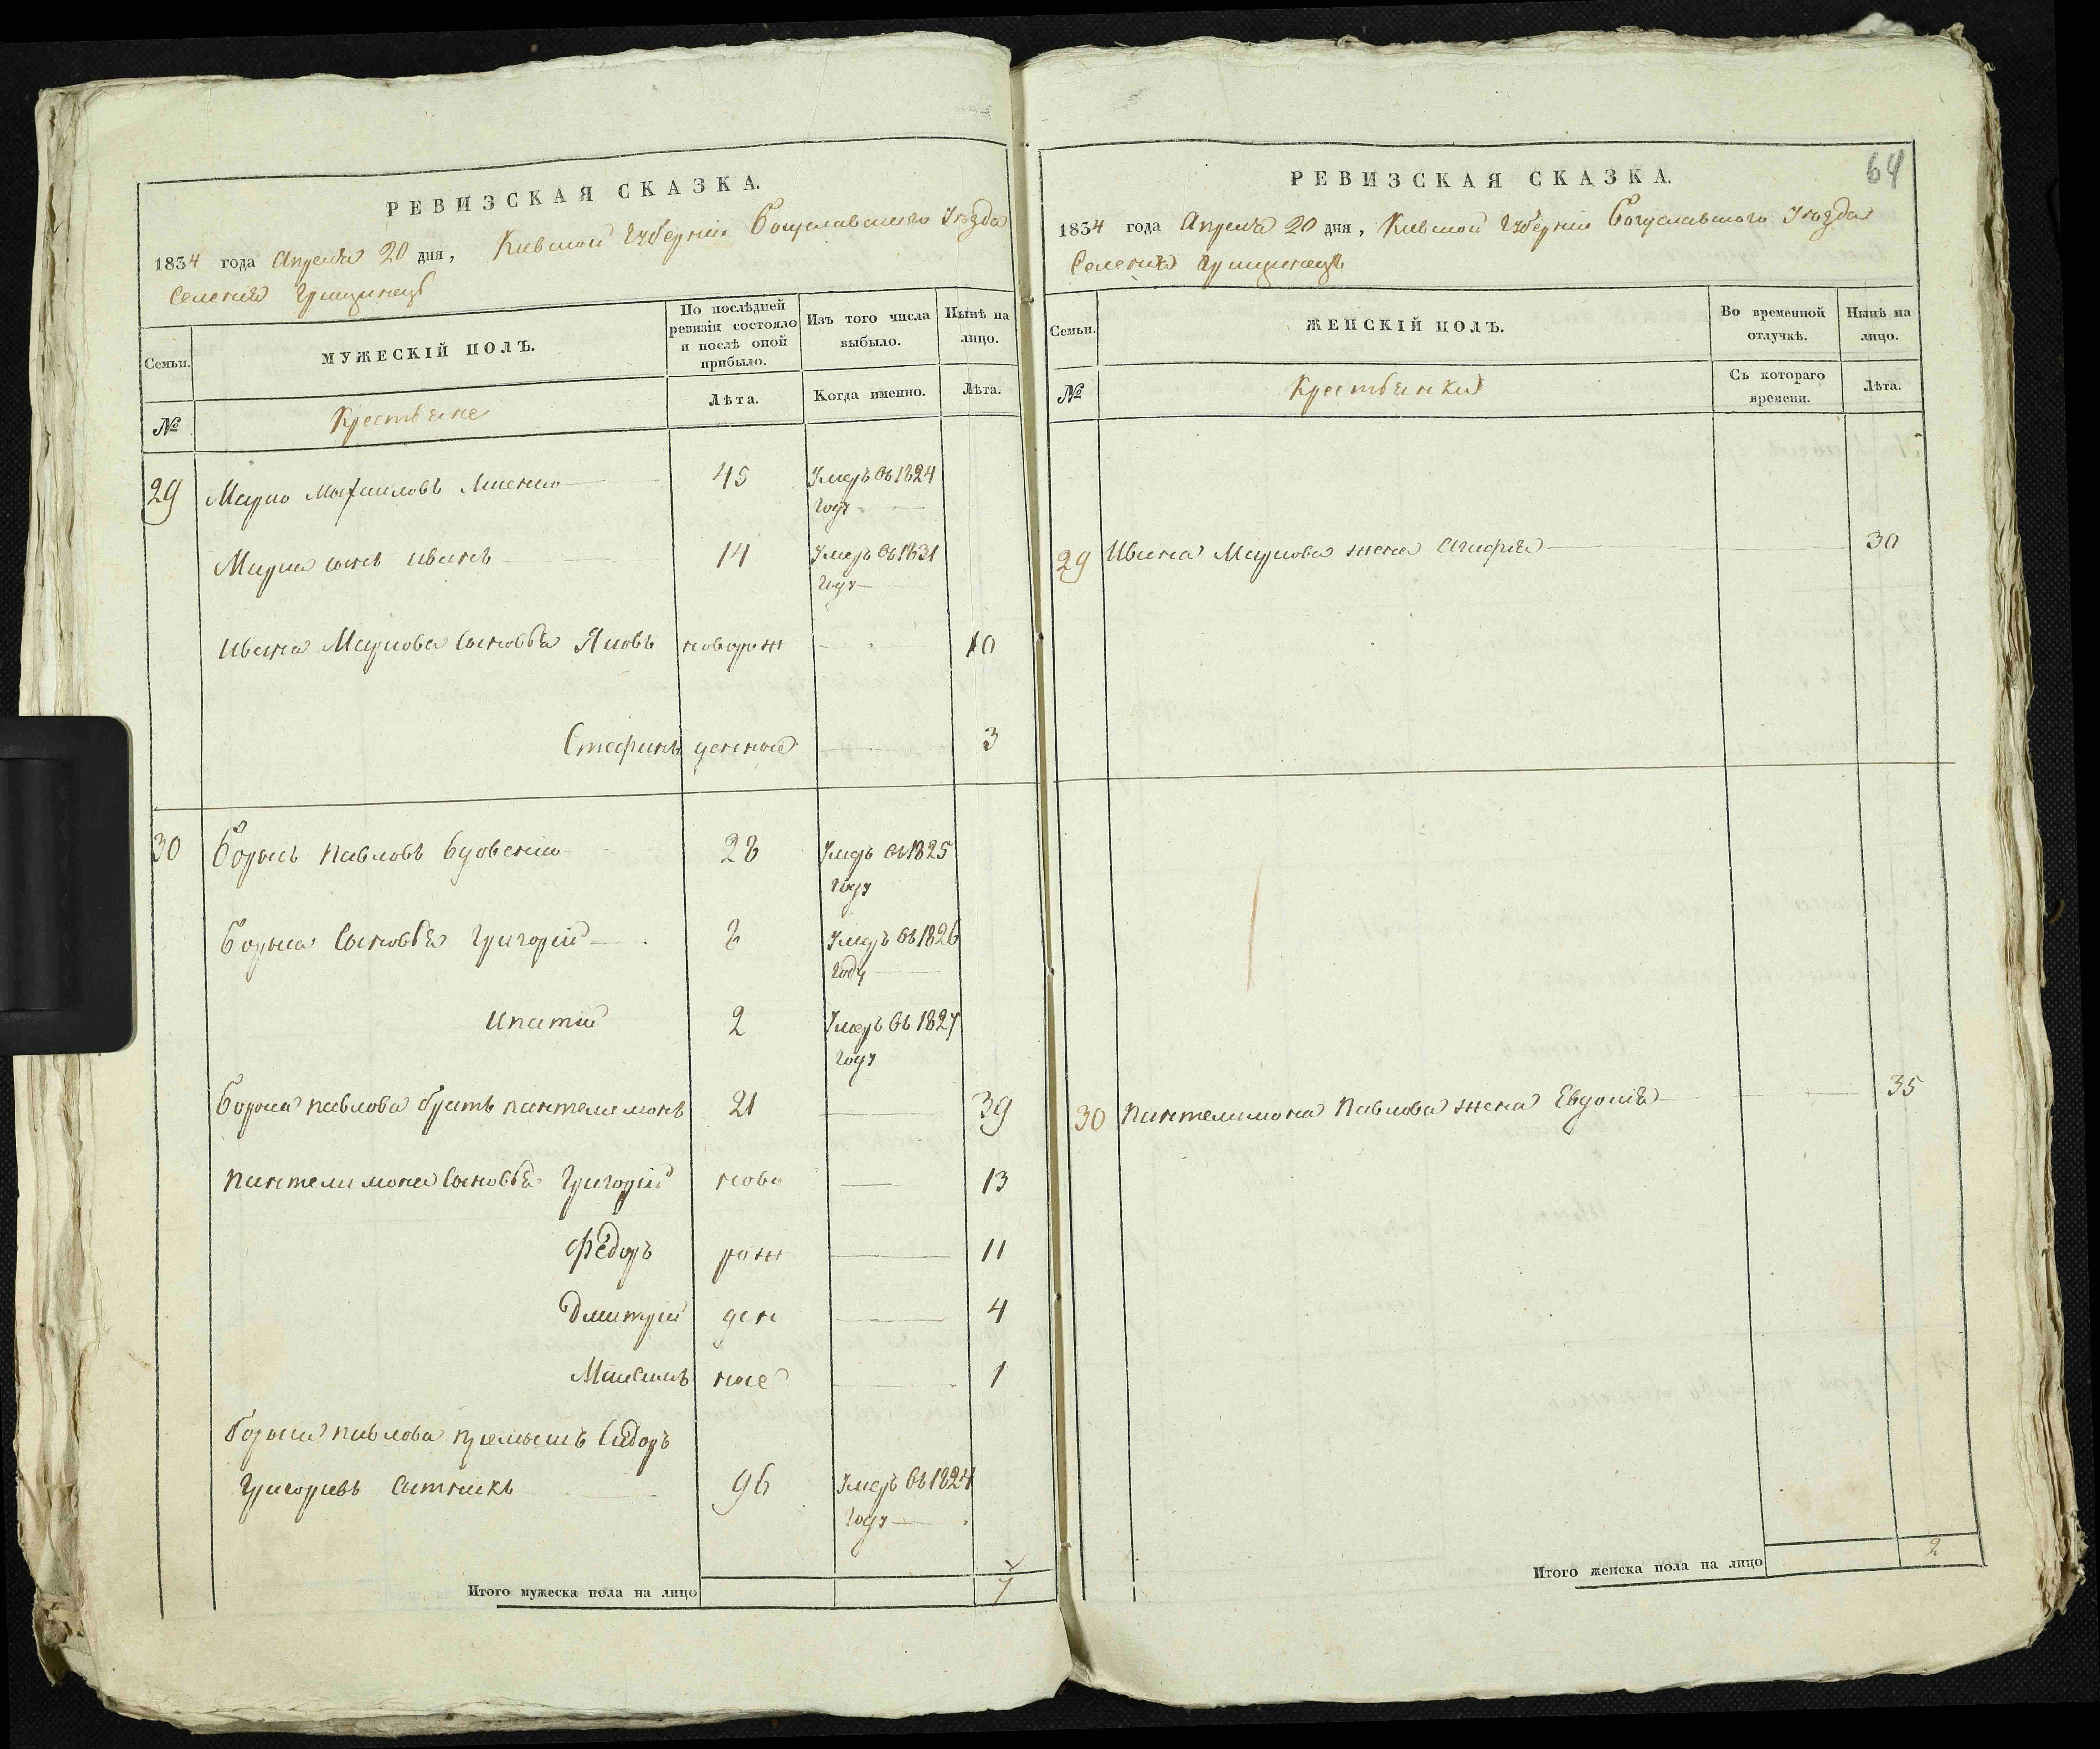 РЕВИЗСКАЯ СКАЗКА.
1834 года Апреля 20 дня, Киевской Губернии Богуславского Уезда
Селения Грищинец
Семьи.
МУЖЕСКІЙ ПОЛЪ.
По послѣдней ревизіи состояло и послѣ оной прибыло.
Изъ того числа выбыло.
Нынѣ на лицо.
№
Крестьяне
Лѣта.
Когда именно.
Лѣта.
29 Марко Михаиловъ 45 Умеръ въ 1824
году
Марка сынъ иванъ 14 Умеръ въ 1831
году
Ивана Маркова сыновья Яковъ новорож 10
Стефанъ денные 3
30 Борысъ павловъ Вдовенко 28 Умеръ въ 1825
году
Борыса сыновья Григорій 8 Умеръ въ 1826
году
Ипатій 2 Умеръ въ 1827
году
Борыса павлова братъ пантелимонъ 21 39
пантелимона сыновья Григорій ново 13
Фёдоръ рож 11
Дмитрій ден 4
Максимъ ные 1
Борыса павлова Сидоръ
Григорьевъ Сытникъ 96 Умеръ въ 1824
году
Итого мужеска пола на лицо 7
64
РЕВИЗСКАЯ СКАЗКА.
1834 года Апреля 20 дня, Киевской Губернии Богуславского Уезда
Селения Грищинецъ
Семьи.
ЖЕНСКІЙ ПОЛЪ.
Во временной отлучкѣ.
Нынѣ на лицо.
№
Крестьянки
Съ котораго времени.
Лѣта.
29 Ивана Маркова жена Агафія 30
30 Пантелимона Павлова жена Евдокія 35
Итого женска пола на лицо 2